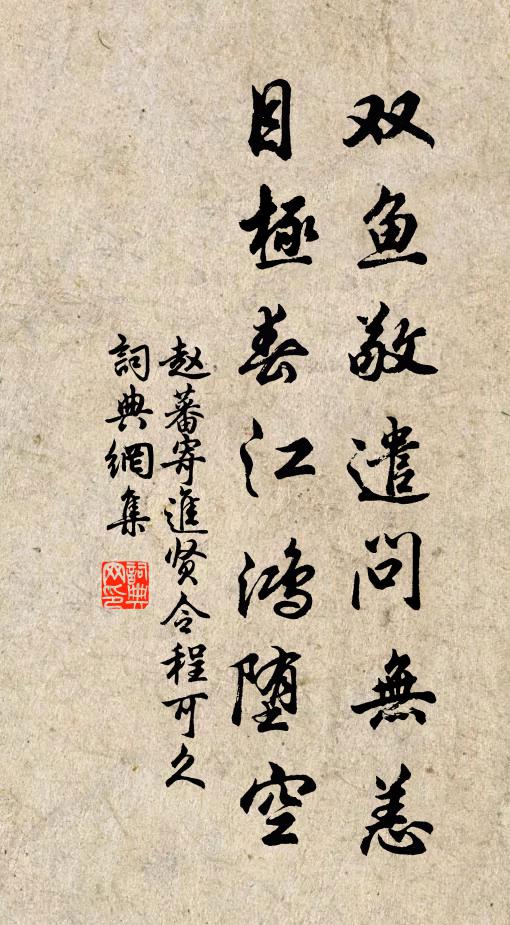 双鱼敬遣问無恙
目極春江鸿堕空
赵蕃寄進贤令程可久
詞典網集
詞典网印